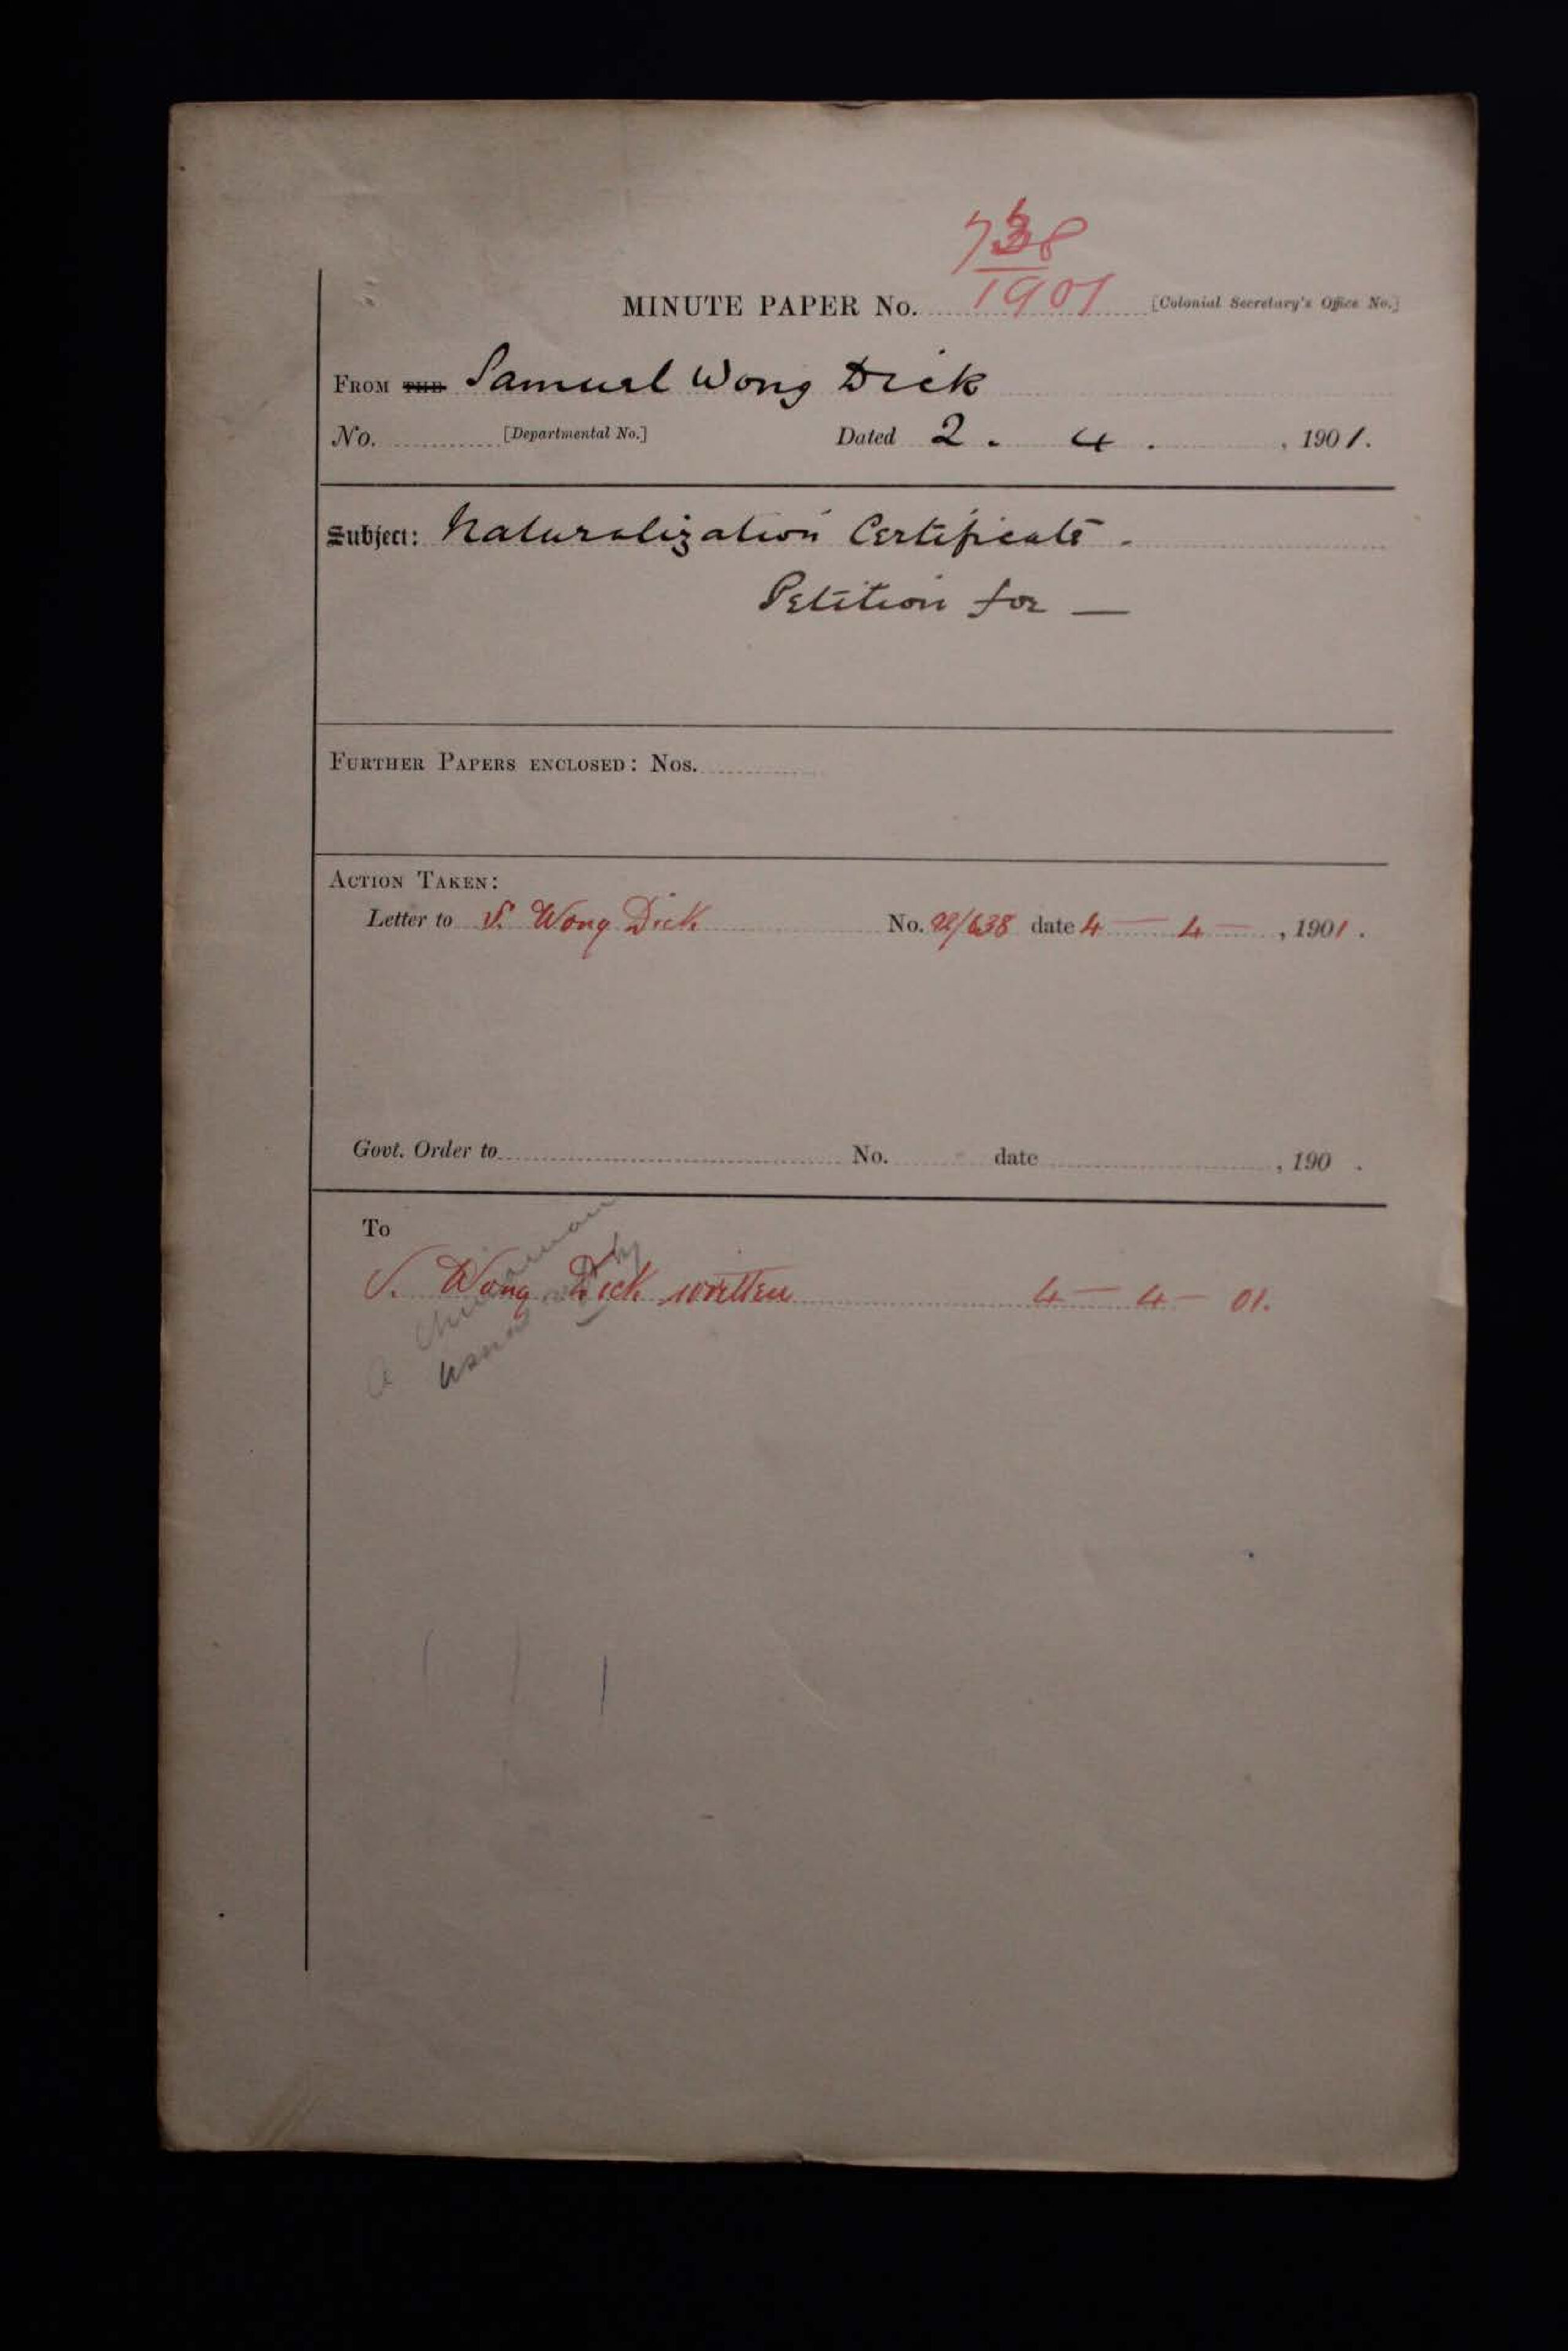 1901
MINUTE PAPER No. [Colonial Secretary's Office No.]
FROM THE Samuel Wong Dick
No. [Departmental No.] Dated 2. 4. , 1901.
Subject: Naturalization Certificate -
Petition for —
FURTHER PAPERS ENCLOSED: Nos.
ACTION TAKEN:
Letter to S. Wong Dick No. /638 date 4 — 4 — , 1901.
Govt. Order to No. date , 190 .
To
S. Wong Dick written 4 — 4 — 01.
a Chinaman
usual